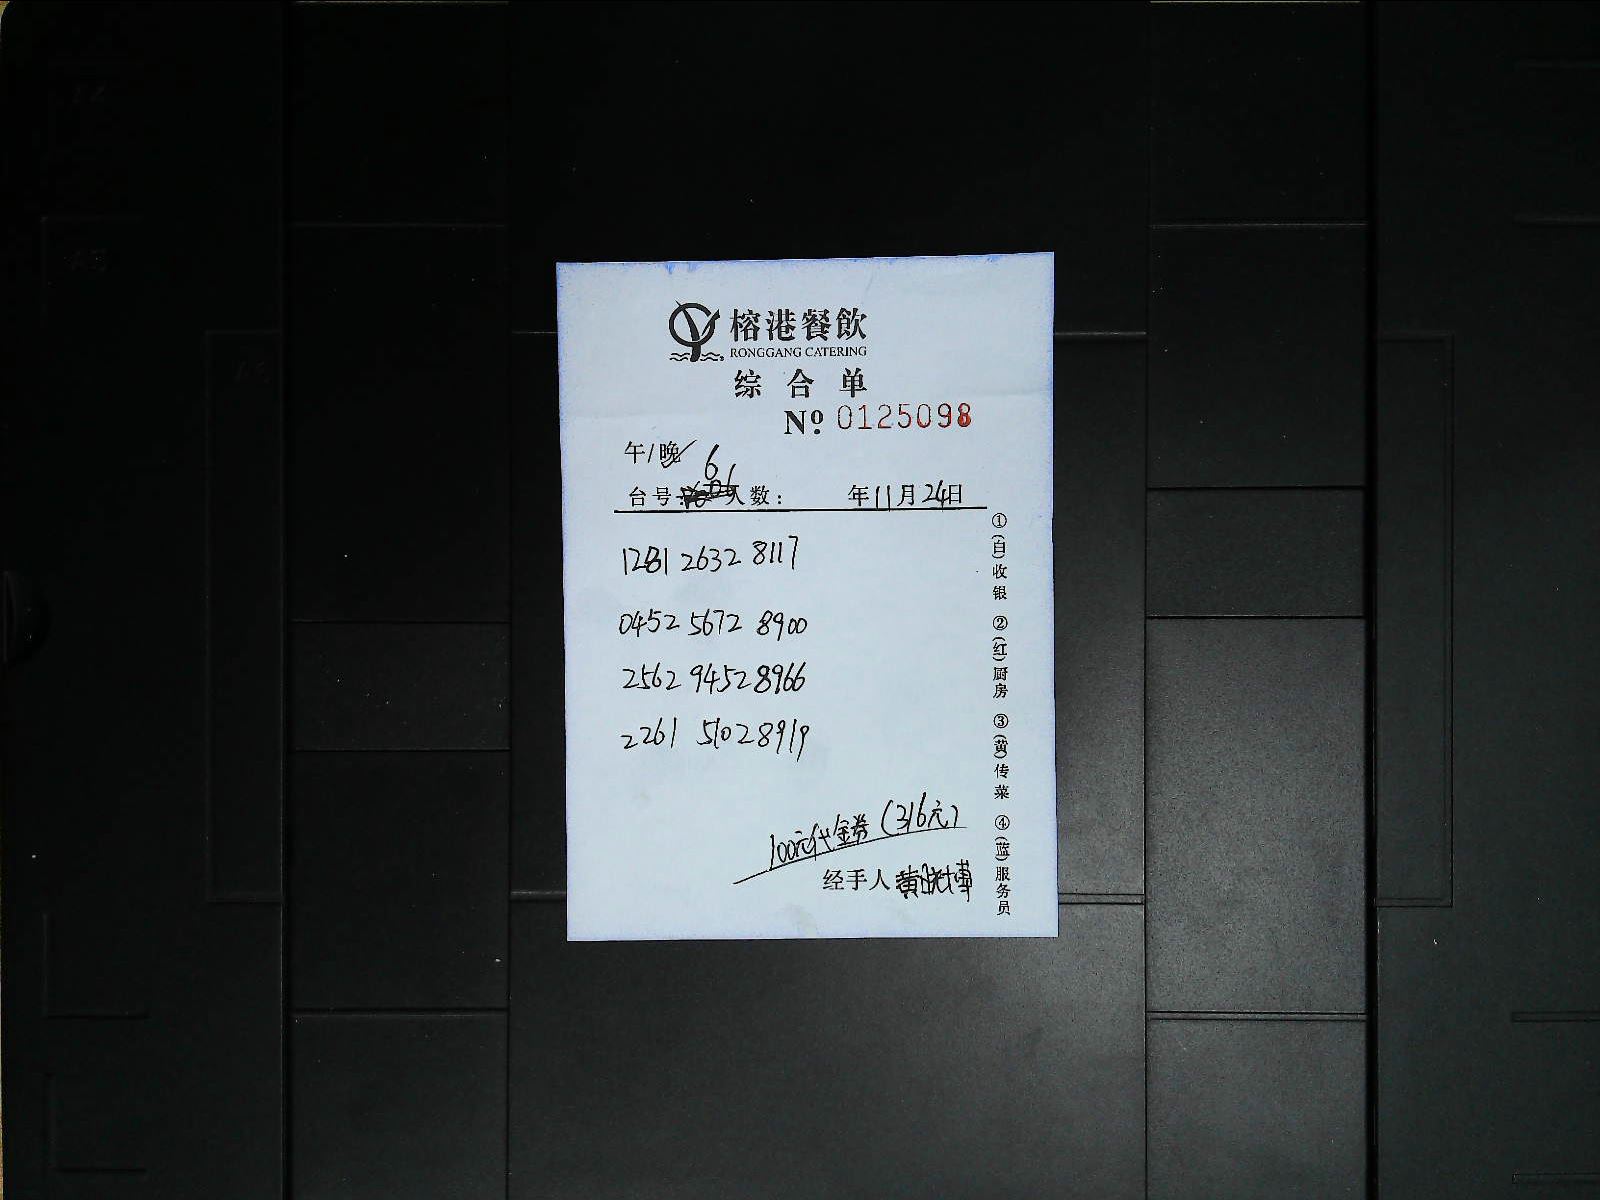 榕港餐飲
RONGGANG CATERING
综合单
No 0125098
午/晚
6
台号: 人数: 年11月24日
1231 2632 8117
0452 5672 8900
2562 9452 8966
2261 5102 8919
100元代金券(316元)
经手人
①(白)收银 ②(红)厨房 ③(黄)传菜 ④(蓝)服务员